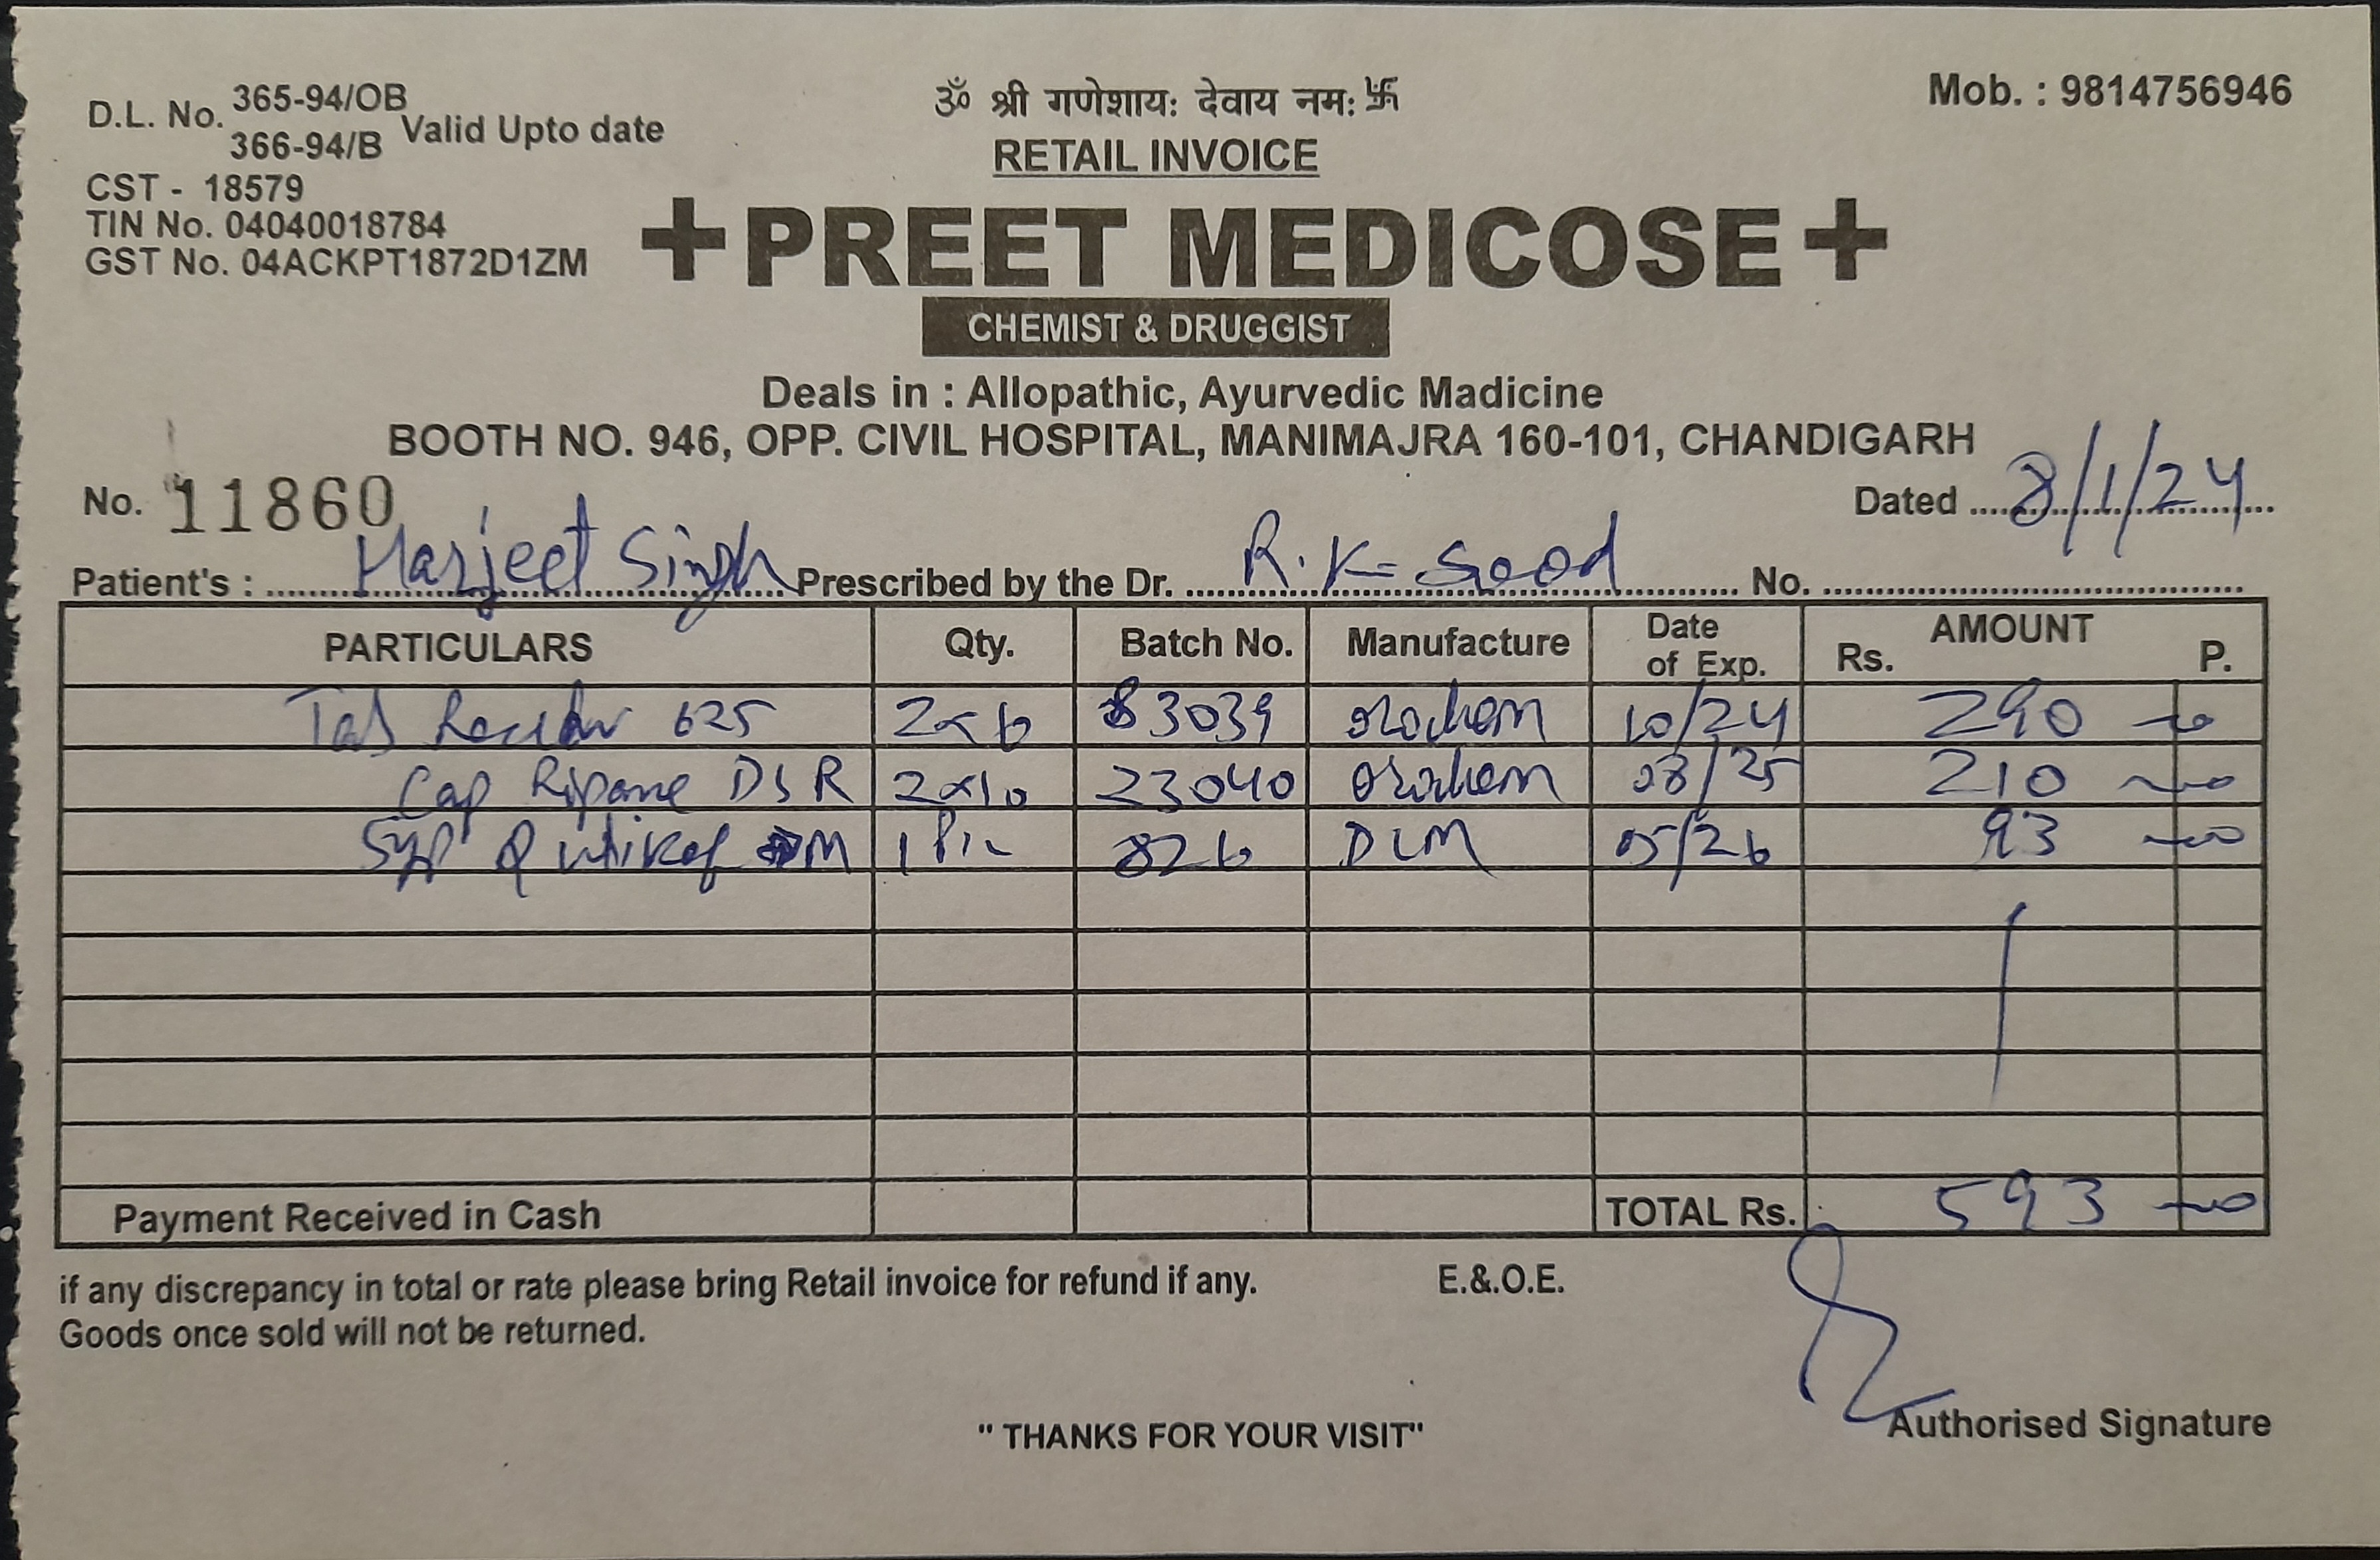 D.L. No. 365-94/OB
366-94/B Valid Upto date
CST - 18579
TIN No. 04040018784
GST No. 04ACKPT1872D1ZM
ॐ श्री गणेशायः देवाय नमः 卐
Mob. : 9814756946
RETAIL INVOICE
+PREET MEDICOSE+
CHEMIST & DRUGGIST
Deals in : Allopathic, Ayurvedic Madicine
BOOTH NO. 946, OPP. CIVIL HOSPITAL, MANIMAJRA 160-101, CHANDIGARH
No. 11860 Dated 8/1/24
Patient's : Harjeet Singh Prescribed by the Dr. R.K. Sood No.
PARTICULARS Qty. Batch No. Manufacture Date of Exp. AMOUNT Rs. P.
Tab 625 2x6 3039 10/24 290
Cap DSR 2x10 23040 08/25 210
Syp 1 826 05/26 93
Payment Received in Cash TOTAL Rs. 593
if any discrepancy in total or rate please bring Retail invoice for refund if any. E.&.O.E.
Goods once sold will not be returned.
" THANKS FOR YOUR VISIT"
Authorised Signature